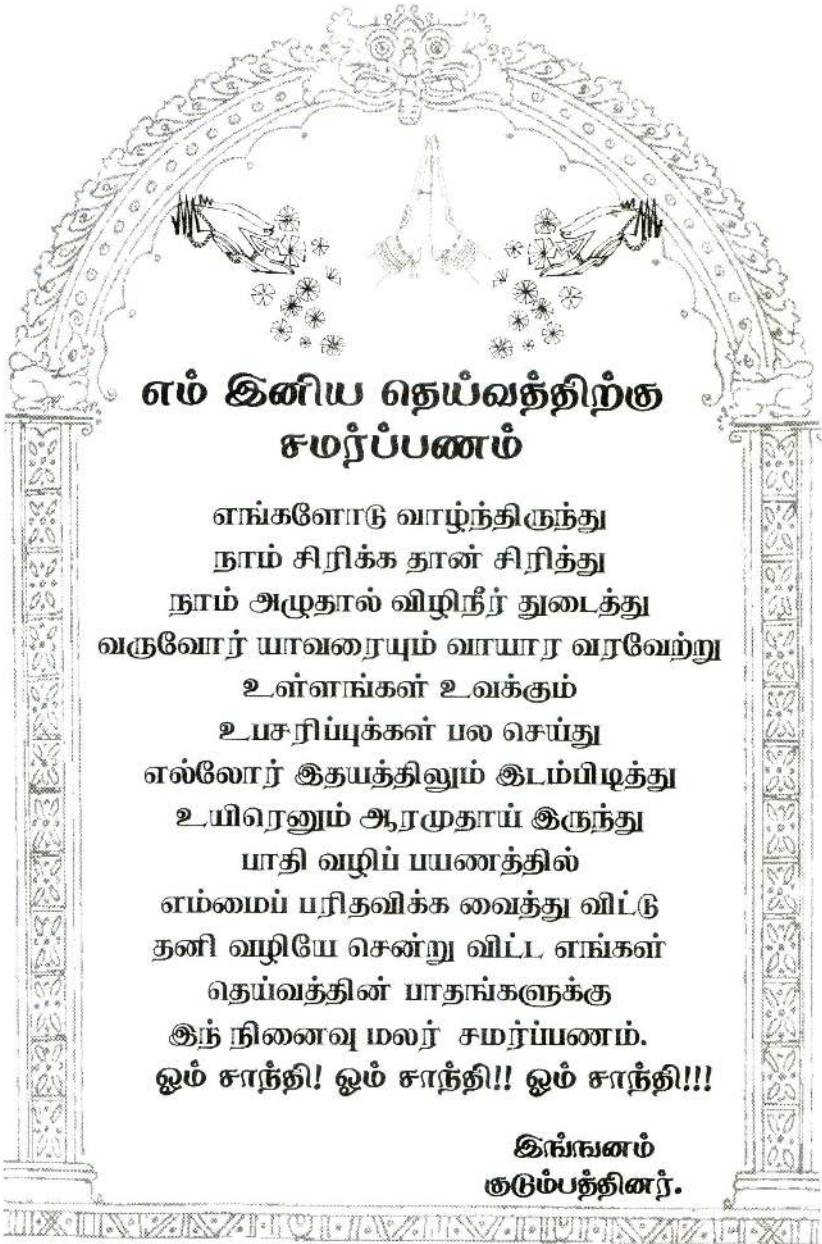 எம் இனிய தெய்வத்திற்கு
சமர்ப்பணம்
எங்களோடு வாழ்ந்திருந்து
நாம் சிரிக்க தான் சிரித்து
நாம் அழுதால் விழிநீர் துடைத்து
வருவோர் யாவரையும் வாயார வரவேற்று
உள்ளங்கள் உவக்கும்
உபசரிப்புக்கள் பல செய்து
எல்லோர் இதயத்திலும் இடம்பிடித்து
உயிரெனும் ஆரமுதாய் இருந்து
பாதி வழிப் பயணத்தில்
எம்மைப் பரிதவிக்க வைத்து விட்டு
தனி வழியே சென்று விட்ட எங்கள்
தெய்வத்தின் பாதங்களுக்கு
இந் நினைவு மலர் சமர்ப்பணம்.
ஓம் சாந்தி! ஓம் சாந்தி!! ஓம் சாந்தி!!!
இங்ஙனம்
குடும்பத்தினர்.